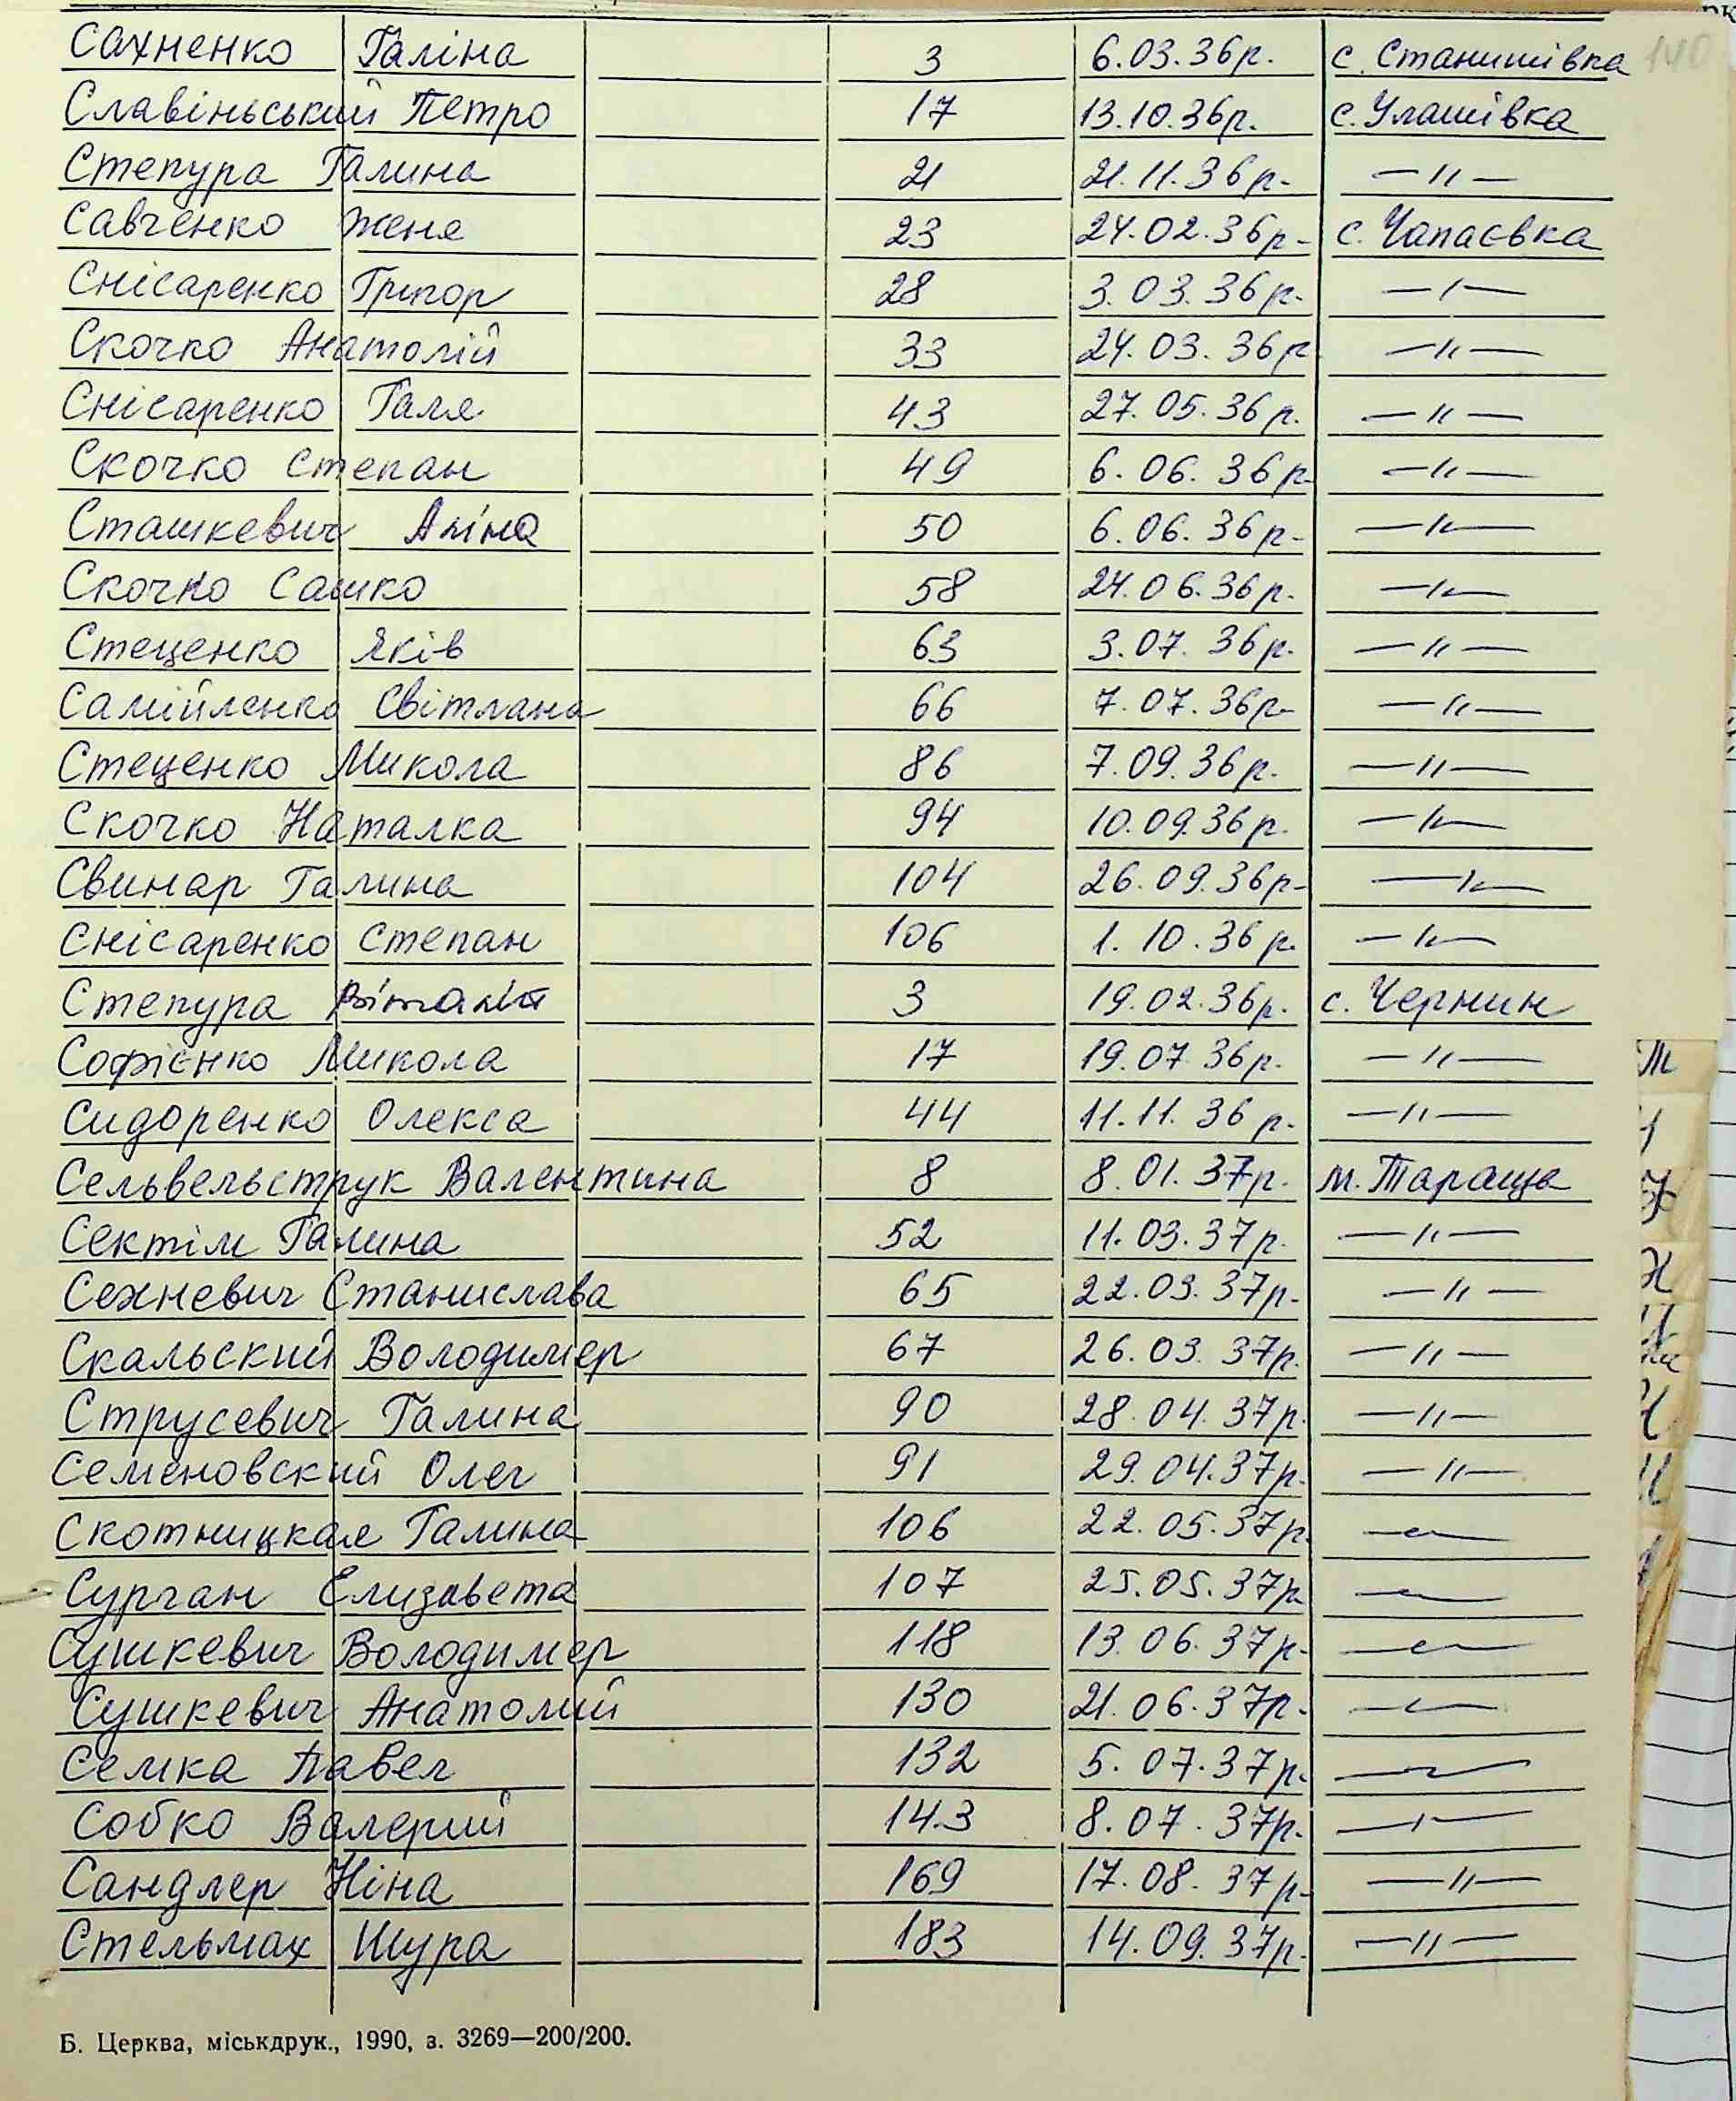 140
Сахненко Галіна 3 6.03.36р. с. Станишівка
Славіньський Петро 17 13.10.36р. с. Улашівка
Степура Галина 21 21.11.36р. —"—
Савченко Женя 23 24.02.36р. с. Чапаєвка
Снісаренко Грігор 28 3.03.36р. —"—
Скочко Анатолій 33 24.03.36р —"—
Снісаренко Галя 43 27.05.36р. —"—
Скочко Степан 49 6.06.36р. —"—
Сташкевич Аліна 50 6.06.36р. —"—
Скочко Сашко 58 24.06.36р. —"—
Стеценко Яків 63 3.07.36р. —"—
Самійленко Світлана 66 7.07.36р. —"—
Стеценко Микола 86 7.09.36р. —"—
Скочко Наталка 94 10.09.36р. —"—
Свинар Галина 104 26.09.36р. —"—
Снісаренко Степан 106 1.10.36р. —"—
Степура Віталій 3 19.02.36р. с. Чернин
Софієнко Микола 17 19.07.36р. —"—
Сидоренко Олекса 44 11.11.36р. —"—
Сельвельструк Валентина 8 8.01.37р. м. Тараща
Сектім Галина 52 11.03.37р. —"—
Сехневич Станислава 65 22.03.37р. —"—
Скальский Володимер 67 26.03.37р. —"—
Струсевич Галина 90 28.04.37р. —"—
Семеновский Олег 91 29.04.37р. —"—
Скотницкая Галина 106 22.05.37р. —"—
Сурган Елизавета 107 25.05.37р. —"—
Сушкевич Володимер 118 13.06.37р. —"—
Сушкевич Анатолий 130 21.06.37р. —"—
Семка Павел 132 5.07.37р. —"—
Собко Валерий 143 8.07.37р. —"—
Сандлер Ніна 169 17.08.37р. —"—
Стельмах Шура 183 14.09.37р. —"—
Б. Церква, міськдрук., 1990, з. 3269—200/200.